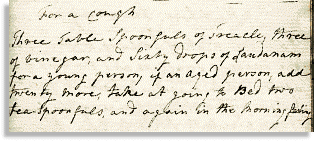 For a Cough
Three Table Spoonfuls of Treacle, three
of vinegar, and Sixty drops of Laudanam
for a young person, if an aged person, add
twenty more, take at going to Bed two
tea Spoonfuls, and again in the morning